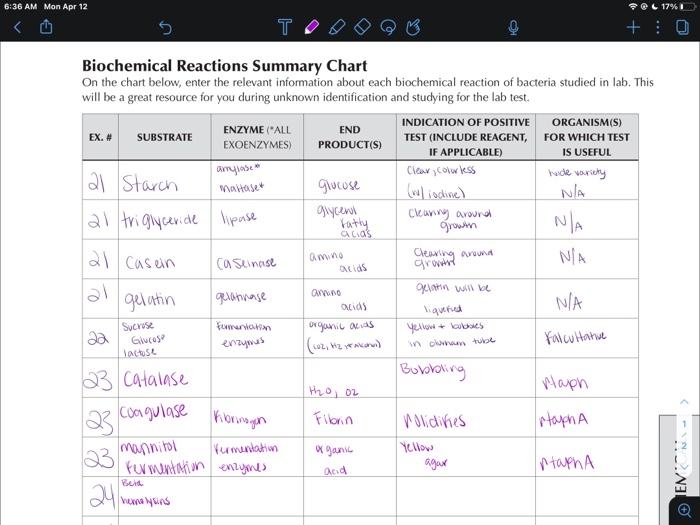 6:36 AM Mon Apr 12
17%
Biochemical Reactions Summary Chart
On the chart below, enter the relevant information about each biochemical reaction of bacteria studied in lab. This
will be a great resource for you during unknown identification and studying for the lab test.
EX. # SUBSTRATE ENZYME (*ALL EXOENZYMES) END PRODUCT(S) INDICATION OF POSITIVE TEST (INCLUDE REAGENT, IF APPLICABLE) ORGANISM(S) FOR WHICH TEST IS USEFUL
21 Starch amylase* maltase* glucose Clear, colorless (w/ iodine) wide variety N/A
21 triglyceride lipase glycerol fatty acids Clearing around growth N/A
21 Casein Caseinase amino acids Clearing around growth N/A
21 gelatin gelatinase amino acids gelatin will be liquified N/A
22 Sucrose Glucose lactose Fermentation enzymes organic acids (CO2, H2 Yellow + bubbles in durham tube
23 Catalase H2O, O2 Bubbling Staph
23 Coagulase Fibrinogen Fibrin Solidifies Staph A
23 mannitol fermentation Fermentation enzymes organic acid Yellow agar Staph A
24 Beta hemolysins
1
2